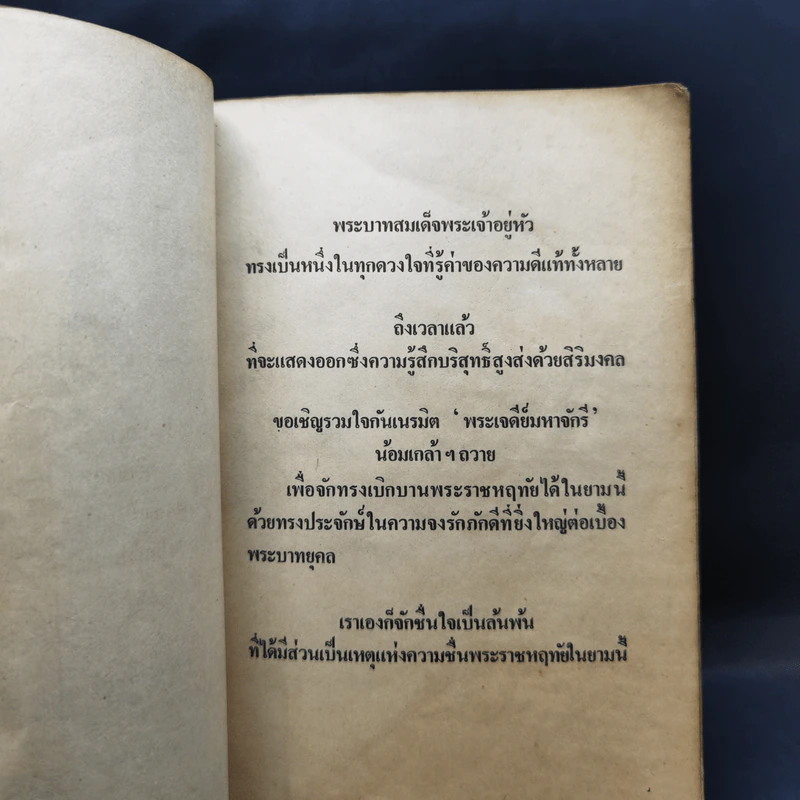 พระบาทสมเด็จพระเจ้าอยู่หัว
ทรงเป็นหนึ่งในทุกดวงใจที่รู้ค่าของความดีแท้ทั้งหลาย
ถึงเวลาแล้ว
ที่จะแสดงออกซึ่งความรู้สึกบริสุทธิ์สูงส่งด้วยสิริมงคล
ขอเชิญรวมใจกันเนรมิต ‘ พระเจดีย์มหาจักรี ’
น้อมเกล้า ฯ ถวาย
เพื่อจักทรงเบิกบานพระราชหฤทัยได้ในยามนี้
ด้วยทรงประจักษ์ในความจงรักภักดีที่ยิ่งใหญ่ต่อเบื้อง
พระบาทยุคล
เราเองก็จักชื่นใจเป็นล้นพ้น
ที่ได้มีส่วนเป็นเหตุแห่งความชื่นพระราชหฤทัยในยามนี้